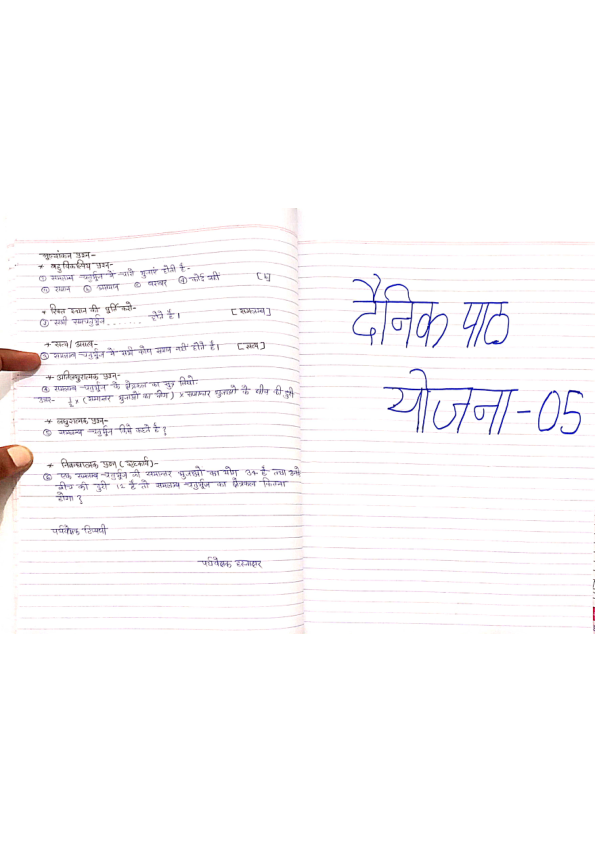 मूल्यांकन प्रश्न-
* बहुविकल्पिय प्रश्न-
① समलम्ब चतुर्भुज में चारो भुजाए होती है -
ⓐ समान ⓑ असमान ⓒ बराबर ⓓ कोई नहीं [b]
* रिक्त स्थान की पूर्ति करो-
② सभी समचतुर्भुज ........ होते है। [समलम्ब]
* सत्य/असत्य-
③ समलम्ब चतुर्भुज में सभी कोण समान नहीं होते है। [सत्य]
* अतिलघुरात्मक प्रश्न-
④ समलम्ब चतुर्भुज के क्षेत्रफल का सूत्र लिखो।
उत्तर- 1/2 × (समान्तर भुजाओं का योग) × समान्तर भुजाओं के बीच की दुरी
* लघुरात्मक प्रश्न-
⑤ समलम्ब चतुर्भुज किसे कहते है?
* निबन्धात्मक प्रश्न (गृहकार्य)-
⑥ एक समलम्ब चतुर्भुज की समान्तर भुजाओं का योग 34 है तथा उनके
बीच की दुरी 12 है तो समलम्ब चतुर्भुज का क्षेत्रफल कितना
होगा?
पर्यवेक्षक टिप्पणी
पर्यवेक्षक हस्ताक्षर
दैनिक पाठ
योजना-05